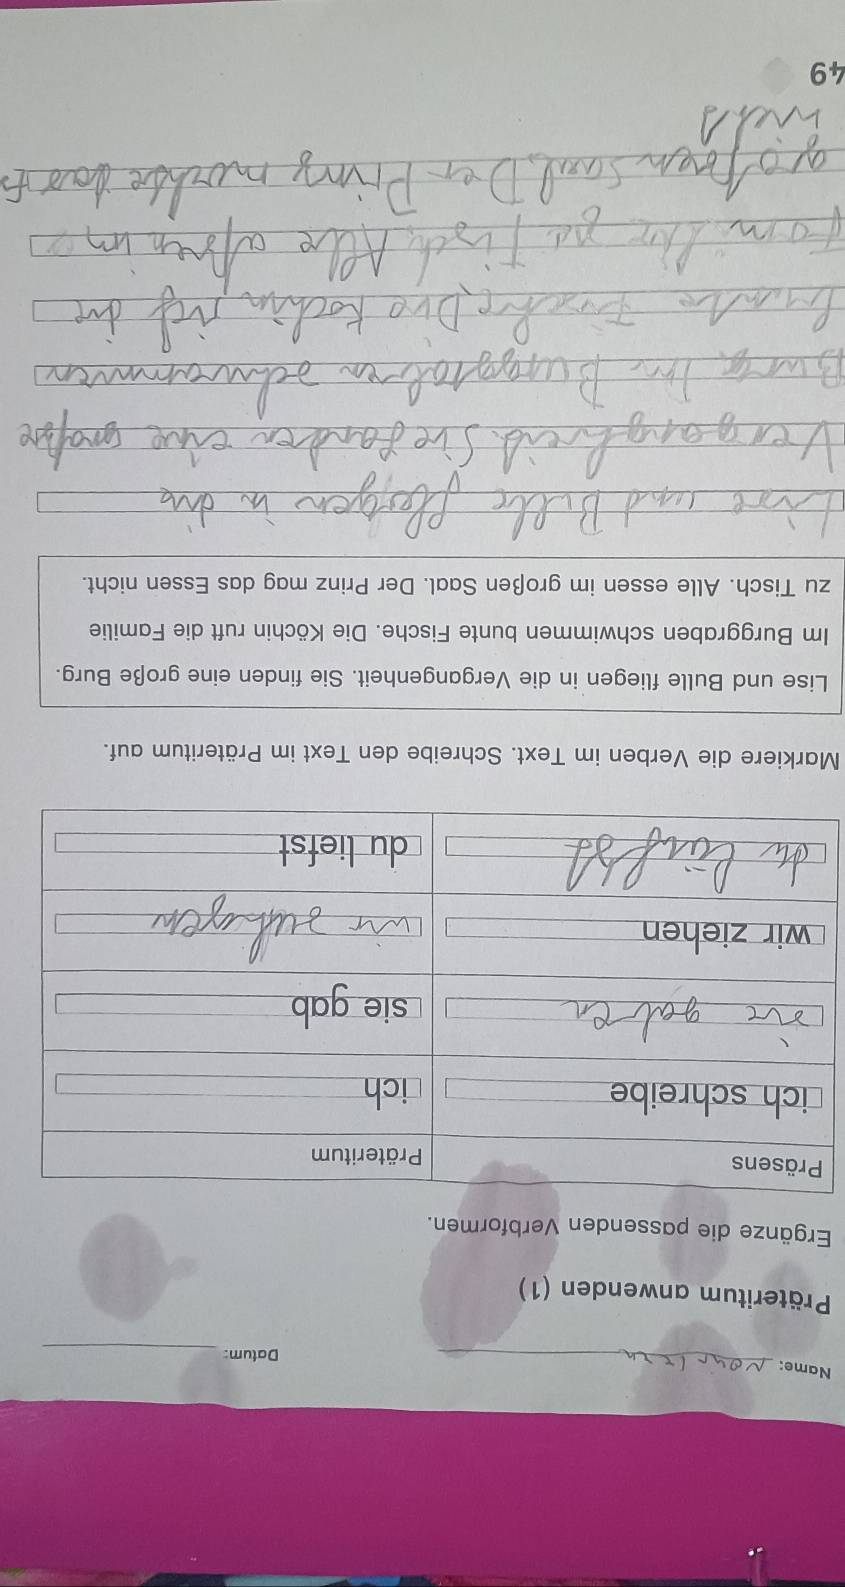 Name: Datum:
Präteritum anwenden (1)
Ergänze die passenden Verbformen.
Präsens Präteritum
ich schreibe ich
sie gaben sie gab
wir ziehen wir
du läufst du liefst
Markiere die Verben im Text. Schreibe den Text im Präteritum auf.
Lise und Bulle fliegen in die Vergangenheit. Sie finden eine große Burg.
Im Burggraben schwimmen bunte Fische. Die Köchin ruft die Familie
zu Tisch. Alle essen im großen Saal. Der Prinz mag das Essen nicht.
Lise und Bulle flogen in die
Vergangheid. Sie fanden eine große
Burg. Im Burggraben schwammen
bunte Fische. Die Köchin rief die
zu Tisch. Alle aßen im
großen Saal. Der Prinz mochte das
49